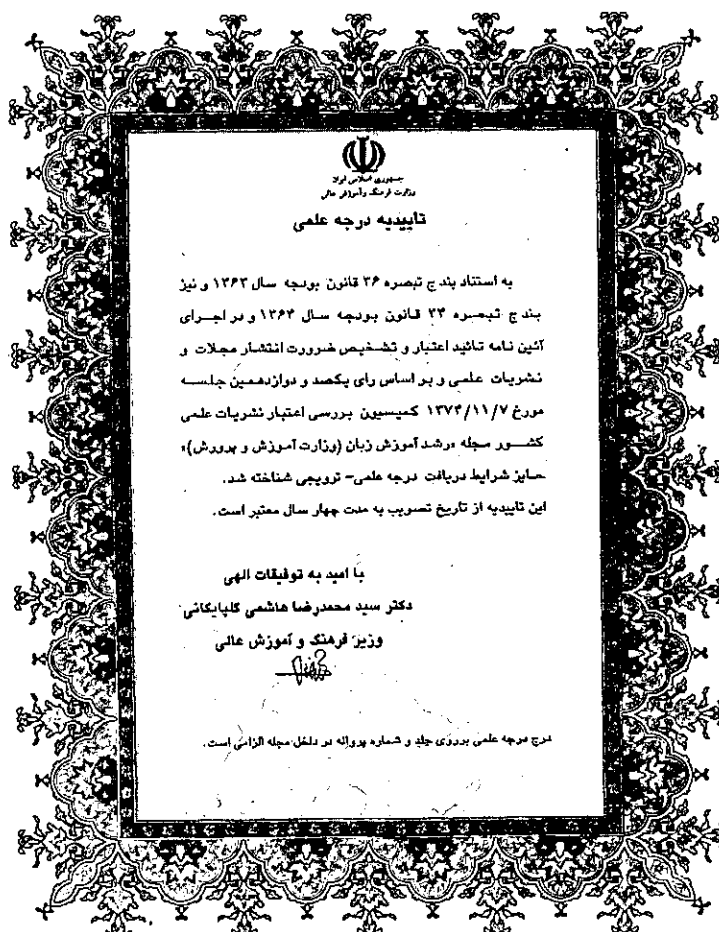 جمهوری اسلامی ایران
وزارت فرهنگ و آموزش عالی
تاییدیه درجه علمی
به استناد بند ج تبصره ۳۶ قانون بودجه سال ۱۳۶۳ و نیز
بند ج تبصره ۳۴ قانون بودجه سال ۱۳۶۴ و در اجرای
آئین نامه تائید اعتبار و تشخیص ضرورت انتشار مجلات و
نشریات علمی و بر اساس رای یکصد و دوازدهمین جلسه
مورخ ۱۳۷۴/۱۱/۷ کمیسیون بررسی اعتبار نشریات علمی
کشور مجله «رشد آموزش زبان (وزارت آموزش و پرورش)»
حایز شرایط دریافت درجه علمی- ترویجی شناخته شد.
این تاییدیه از تاریخ تصویب به مدت چهار سال معتبر است.
با امید به توفیقات الهی
دکتر سید محمدرضا هاشمی گلپایگانی
وزیر فرهنگ و آموزش عالی
درج درجه علمی برروی جلد و شماره پروانه در داخل مجله الزامی است.